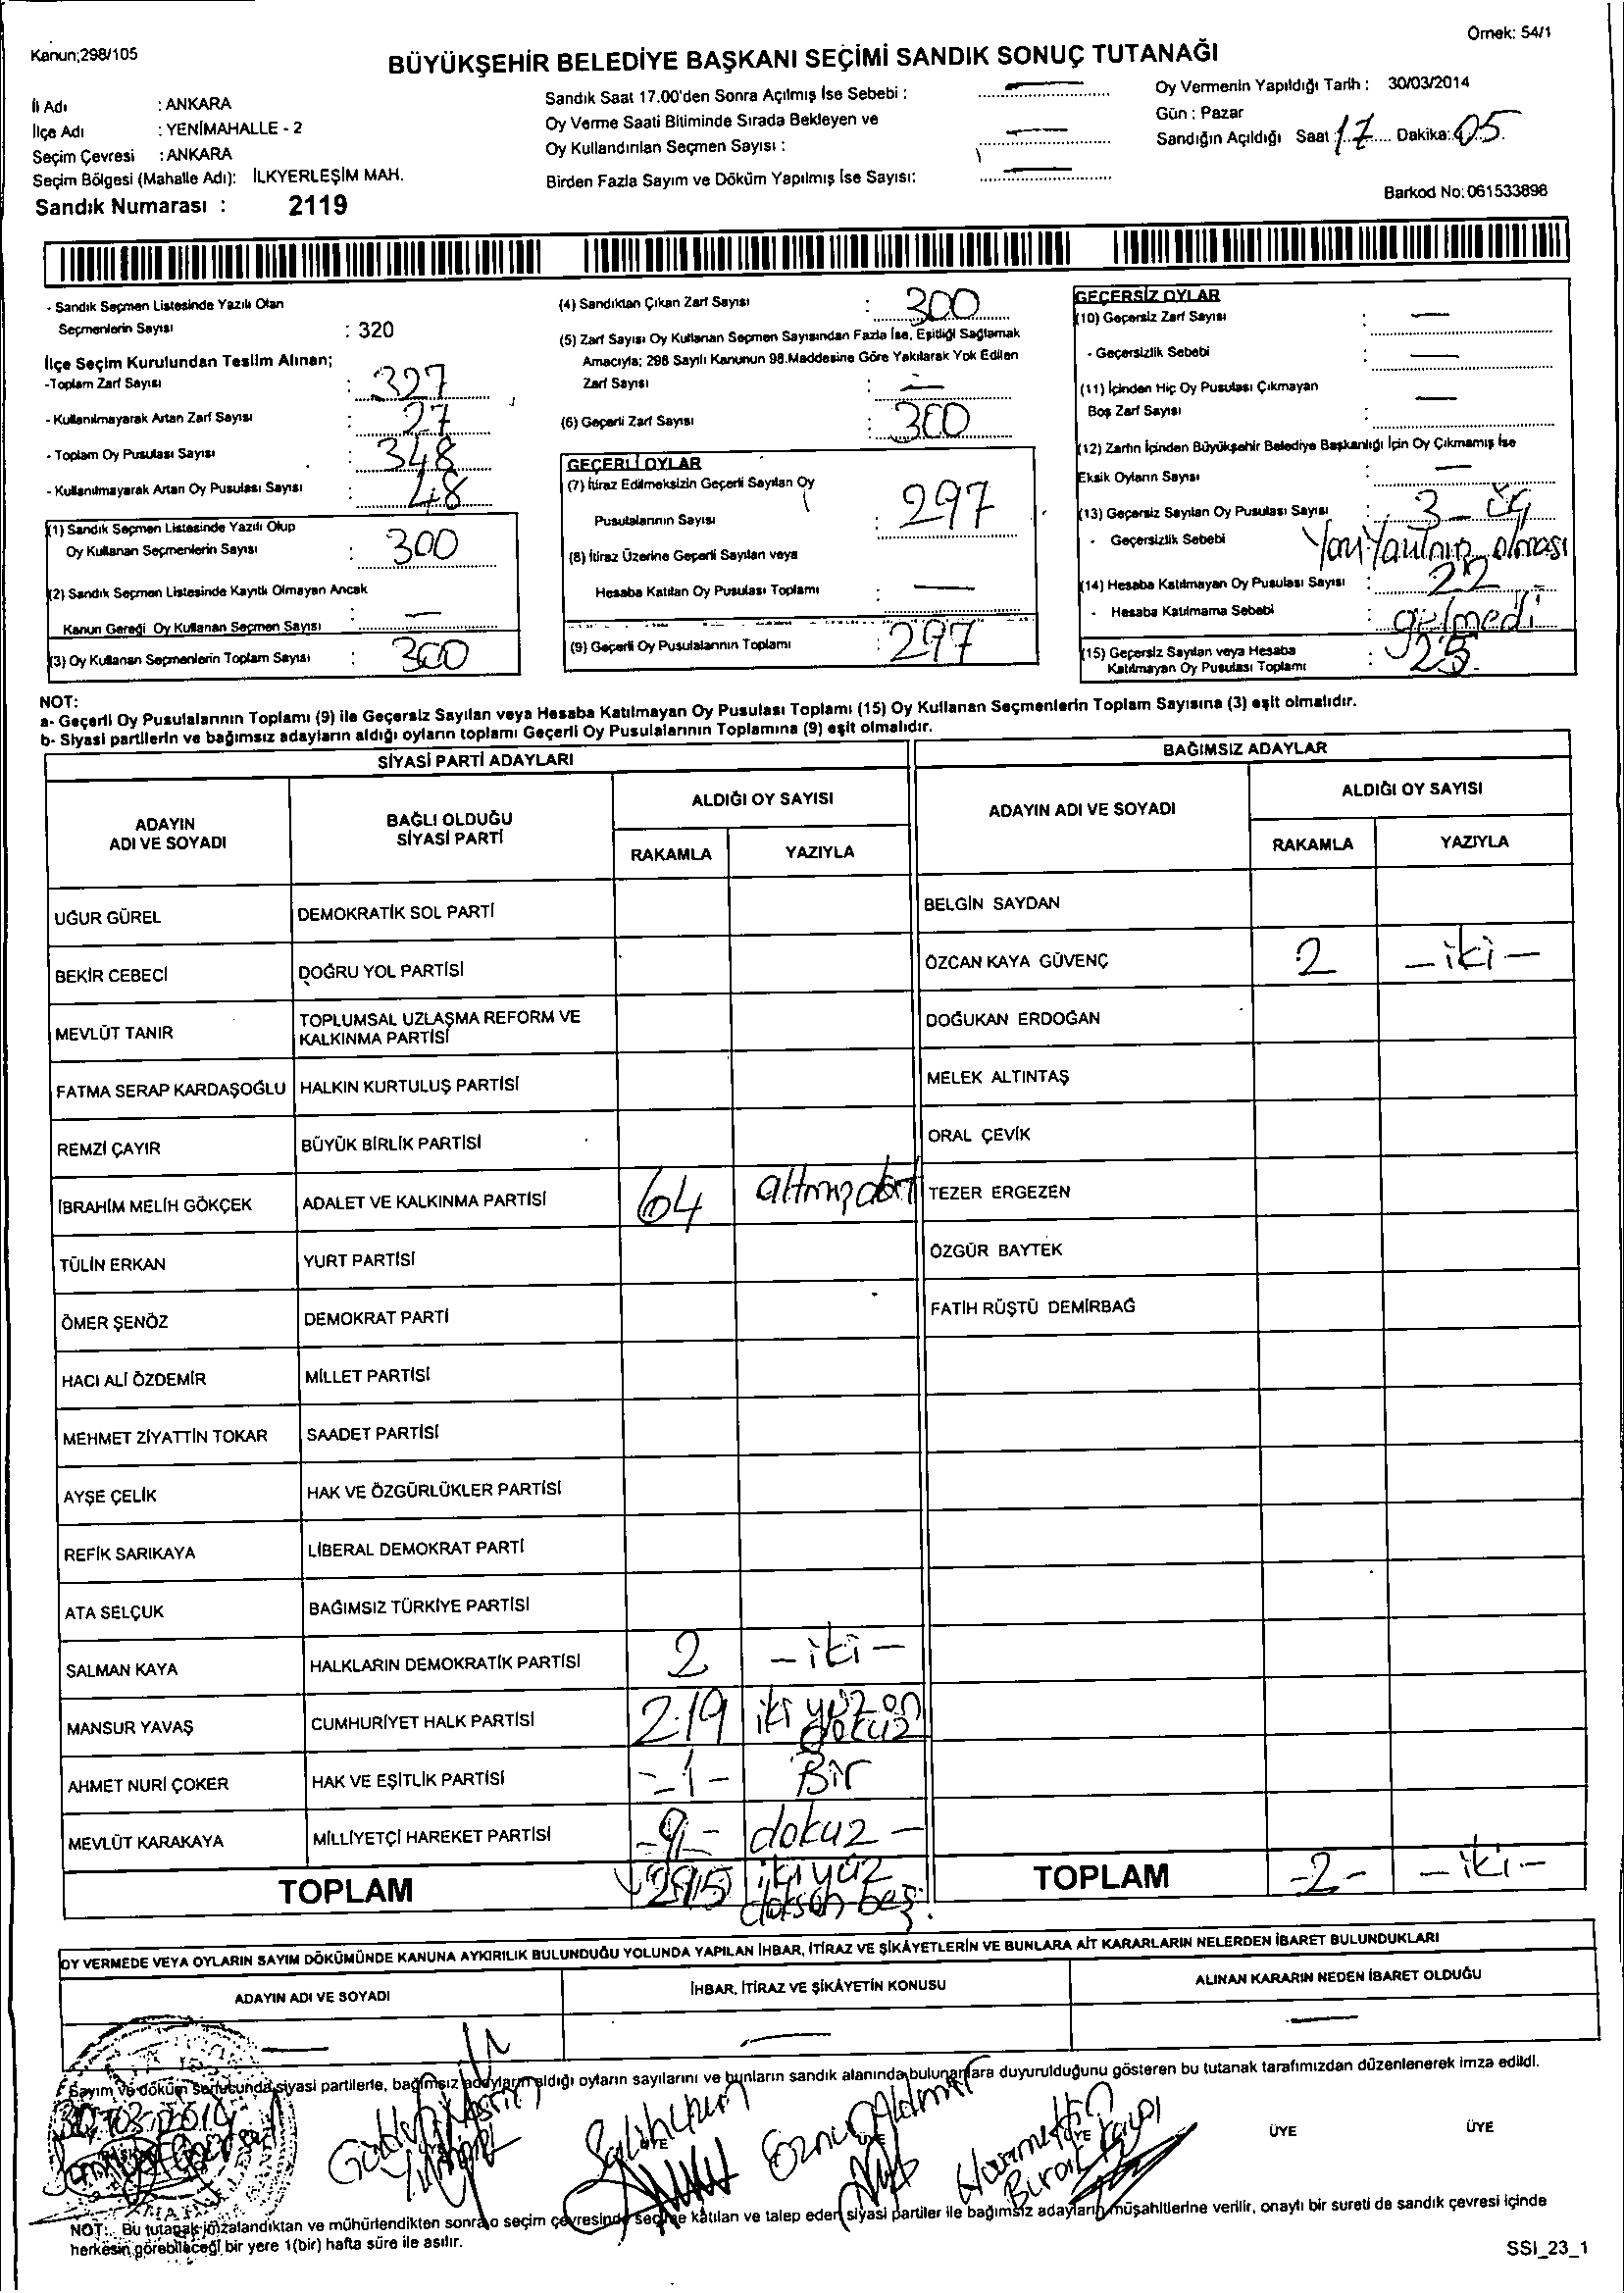 Kanun;298/105
Örnek: 54/1
BÜYÜKŞEHİR BELEDİYE BAŞKANI SEÇİMİ SANDIK SONUÇ TUTANAĞI
İl Adı : ANKARA
İlçe Adı : YENİMAHALLE - 2
Seçim Çevresi : ANKARA
Seçim Bölgesi (Mahalle Adı): İLKYERLEŞİM MAH.
Sandık Numarası : 2119
Sandık Saat 17.00'den Sonra Açılmış İse Sebebi : —
Oy Verme Saati Bitiminde Sırada Bekleyen ve
Oy Kullandırılan Seçmen Sayısı : —
Birden Fazla Sayım ve Döküm Yapılmış İse Sayısı: —
Oy Vermenin Yapıldığı Tarih : 30/03/2014
Gün : Pazar
Sandığın Açıldığı Saat 17 Dakika: 05
Barkod No: 061533898
- Sandık Seçmen Listesinde Yazılı Olan
Seçmenlerin Sayısı : 320
İlçe Seçim Kurulundan Teslim Alınan;
-Toplam Zarf Sayısı : 327
- Kullanılmayarak Artan Zarf Sayısı : 27
- Toplam Oy Pusulası Sayısı : 348
- Kullanılmayarak Artan Oy Pusulası Sayısı : 48
(1) Sandık Seçmen Listesinde Yazılı Olup
Oy Kullanan Seçmenlerin Sayısı : 300
(2) Sandık Seçmen Listesinde Kayıtlı Olmayan Ancak
Kanun Gereği Oy Kullanan Seçmen Sayısı : —
(3) Oy Kullanan Seçmenlerin Toplam Sayısı : 300
(4) Sandıktan Çıkan Zarf Sayısı : 300
(5) Zarf Sayısı Oy Kullanan Seçmen Sayısından Fazla İse, Eşitliği Sağlamak
Amacıyla; 298 Sayılı Kanunun 98.Maddesine Göre Yakılarak Yok Edilen
Zarf Sayısı : —
(6) Geçerli Zarf Sayısı : 300
GEÇERLİ OYLAR
(7) İtiraz Edilmeksizin Geçerli Sayılan Oy
Pusulalarının Sayısı : 297
(8) İtiraz Üzerine Geçerli Sayılan veya
Hesaba Katılan Oy Pusulası Toplamı : —
(9) Geçerli Oy Pusulalarının Toplamı : 297
GEÇERSİZ OYLAR
(10) Geçersiz Zarf Sayısı : —
- Geçersizlik Sebebi : —
(11) İçinden Hiç Oy Pusulası Çıkmayan
Boş Zarf Sayısı : —
(12) Zarfın İçinden Büyükşehir Belediye Başkanlığı İçin Oy Çıkmamış İse
Eksik Oyların Sayısı : —
(13) Geçersiz Sayılan Oy Pusulası Sayısı : 3 -
- Geçersizlik Sebebi olması
(14) Hesaba Katılmayan Oy Pusulası Sayısı : 22
- Hesaba Katılmama Sebebi : gelmedi
(15) Geçersiz Sayılan veya Hesaba
Katılmayan Oy Pusulası Toplamı : 25
NOT:
a- Geçerli Oy Pusulalarının Toplamı (9) ile Geçersiz Sayılan veya Hesaba Katılmayan Oy Pusulası Toplamı (15) Oy Kullanan Seçmenlerin Toplam Sayısına (3) eşit olmalıdır.
b- Siyasi partilerin ve bağımsız adayların aldığı oyların toplamı Geçerli Oy Pusulalarının Toplamına (9) eşit olmalıdır.
SİYASİ PARTİ ADAYLARI
ADAYIN
ADI VE SOYADI
BAĞLI OLDUĞU
SİYASİ PARTİ
ALDIĞI OY SAYISI
RAKAMLA YAZIYLA
UĞUR GÜREL DEMOKRATİK SOL PARTİ
BEKİR CEBECİ DOĞRU YOL PARTİSİ
MEVLÜT TANIR TOPLUMSAL UZLAŞMA REFORM VE
KALKINMA PARTİSİ
FATMA SERAP KARDAŞOĞLU HALKIN KURTULUŞ PARTİSİ
REMZİ ÇAYIR BÜYÜK BİRLİK PARTİSİ
İBRAHİM MELİH GÖKÇEK ADALET VE KALKINMA PARTİSİ 64 altmışdört
TÜLİN ERKAN YURT PARTİSİ
ÖMER ŞENÖZ DEMOKRAT PARTİ
HACI ALİ ÖZDEMİR MİLLET PARTİSİ
MEHMET ZİYATTİN TOKAR SAADET PARTİSİ
AYŞE ÇELİK HAK VE ÖZGÜRLÜKLER PARTİSİ
REFİK SARIKAYA LİBERAL DEMOKRAT PARTİ
ATA SELÇUK BAĞIMSIZ TÜRKİYE PARTİSİ
SALMAN KAYA HALKLARIN DEMOKRATİK PARTİSİ 2 - iki -
MANSUR YAVAŞ CUMHURİYET HALK PARTİSİ 219 iki yüz on
dokuz
AHMET NURİ ÇOKER HAK VE EŞİTLİK PARTİSİ - 1 - Bir
MEVLÜT KARAKAYA MİLLİYETÇİ HAREKET PARTİSİ - 9 - dokuz -
TOPLAM 295 iki yüz
doksan beş.
BAĞIMSIZ ADAYLAR
ADAYIN ADI VE SOYADI
ALDIĞI OY SAYISI
RAKAMLA YAZIYLA
BELGİN SAYDAN
ÖZCAN KAYA GÜVENÇ 2 - iki -
DOĞUKAN ERDOĞAN
MELEK ALTINTAŞ
ORAL ÇEVİK
TEZER ERGEZEN
ÖZGÜR BAYTEK
FATİH RÜŞTÜ DEMİRBAĞ
TOPLAM -2- - iki -
OY VERMEDE VEYA OYLARIN SAYIM DÖKÜMÜNDE KANUNA AYKIRILIK BULUNDUĞU YOLUNDA YAPILAN İHBAR, İTİRAZ VE ŞİKÂYETLERİN VE BUNLARA AİT KARARLARIN NELERDEN İBARET BULUNDUKLARI
ADAYIN ADI VE SOYADI İHBAR, İTİRAZ VE ŞİKÂYETİN KONUSU ALINAN KARARIN NEDEN İBARET OLDUĞU
— — —
Sayım ve döküm sonucunda siyasi partilerle, bağımsız adayların aldığı oyların sayılarını ve bunların sandık alanında bulunanlara duyurulduğunu gösteren bu tutanak tarafımızdan düzenlenerek imza edildi.
30/03/2014
ÜYE ÜYE ÜYE ÜYE ÜYE
NOT: Bu tutanak imzalandıktan ve mühürlendikten sonra o seçim çevresinde seçime katılan ve talep eden siyasi partiler ile bağımsız adayların müşahitlerine verilir, onaylı bir sureti de sandık çevresi içinde
herkesin görebileceği bir yere 1(bir) hafta süre ile asılır.
SSI_23_1